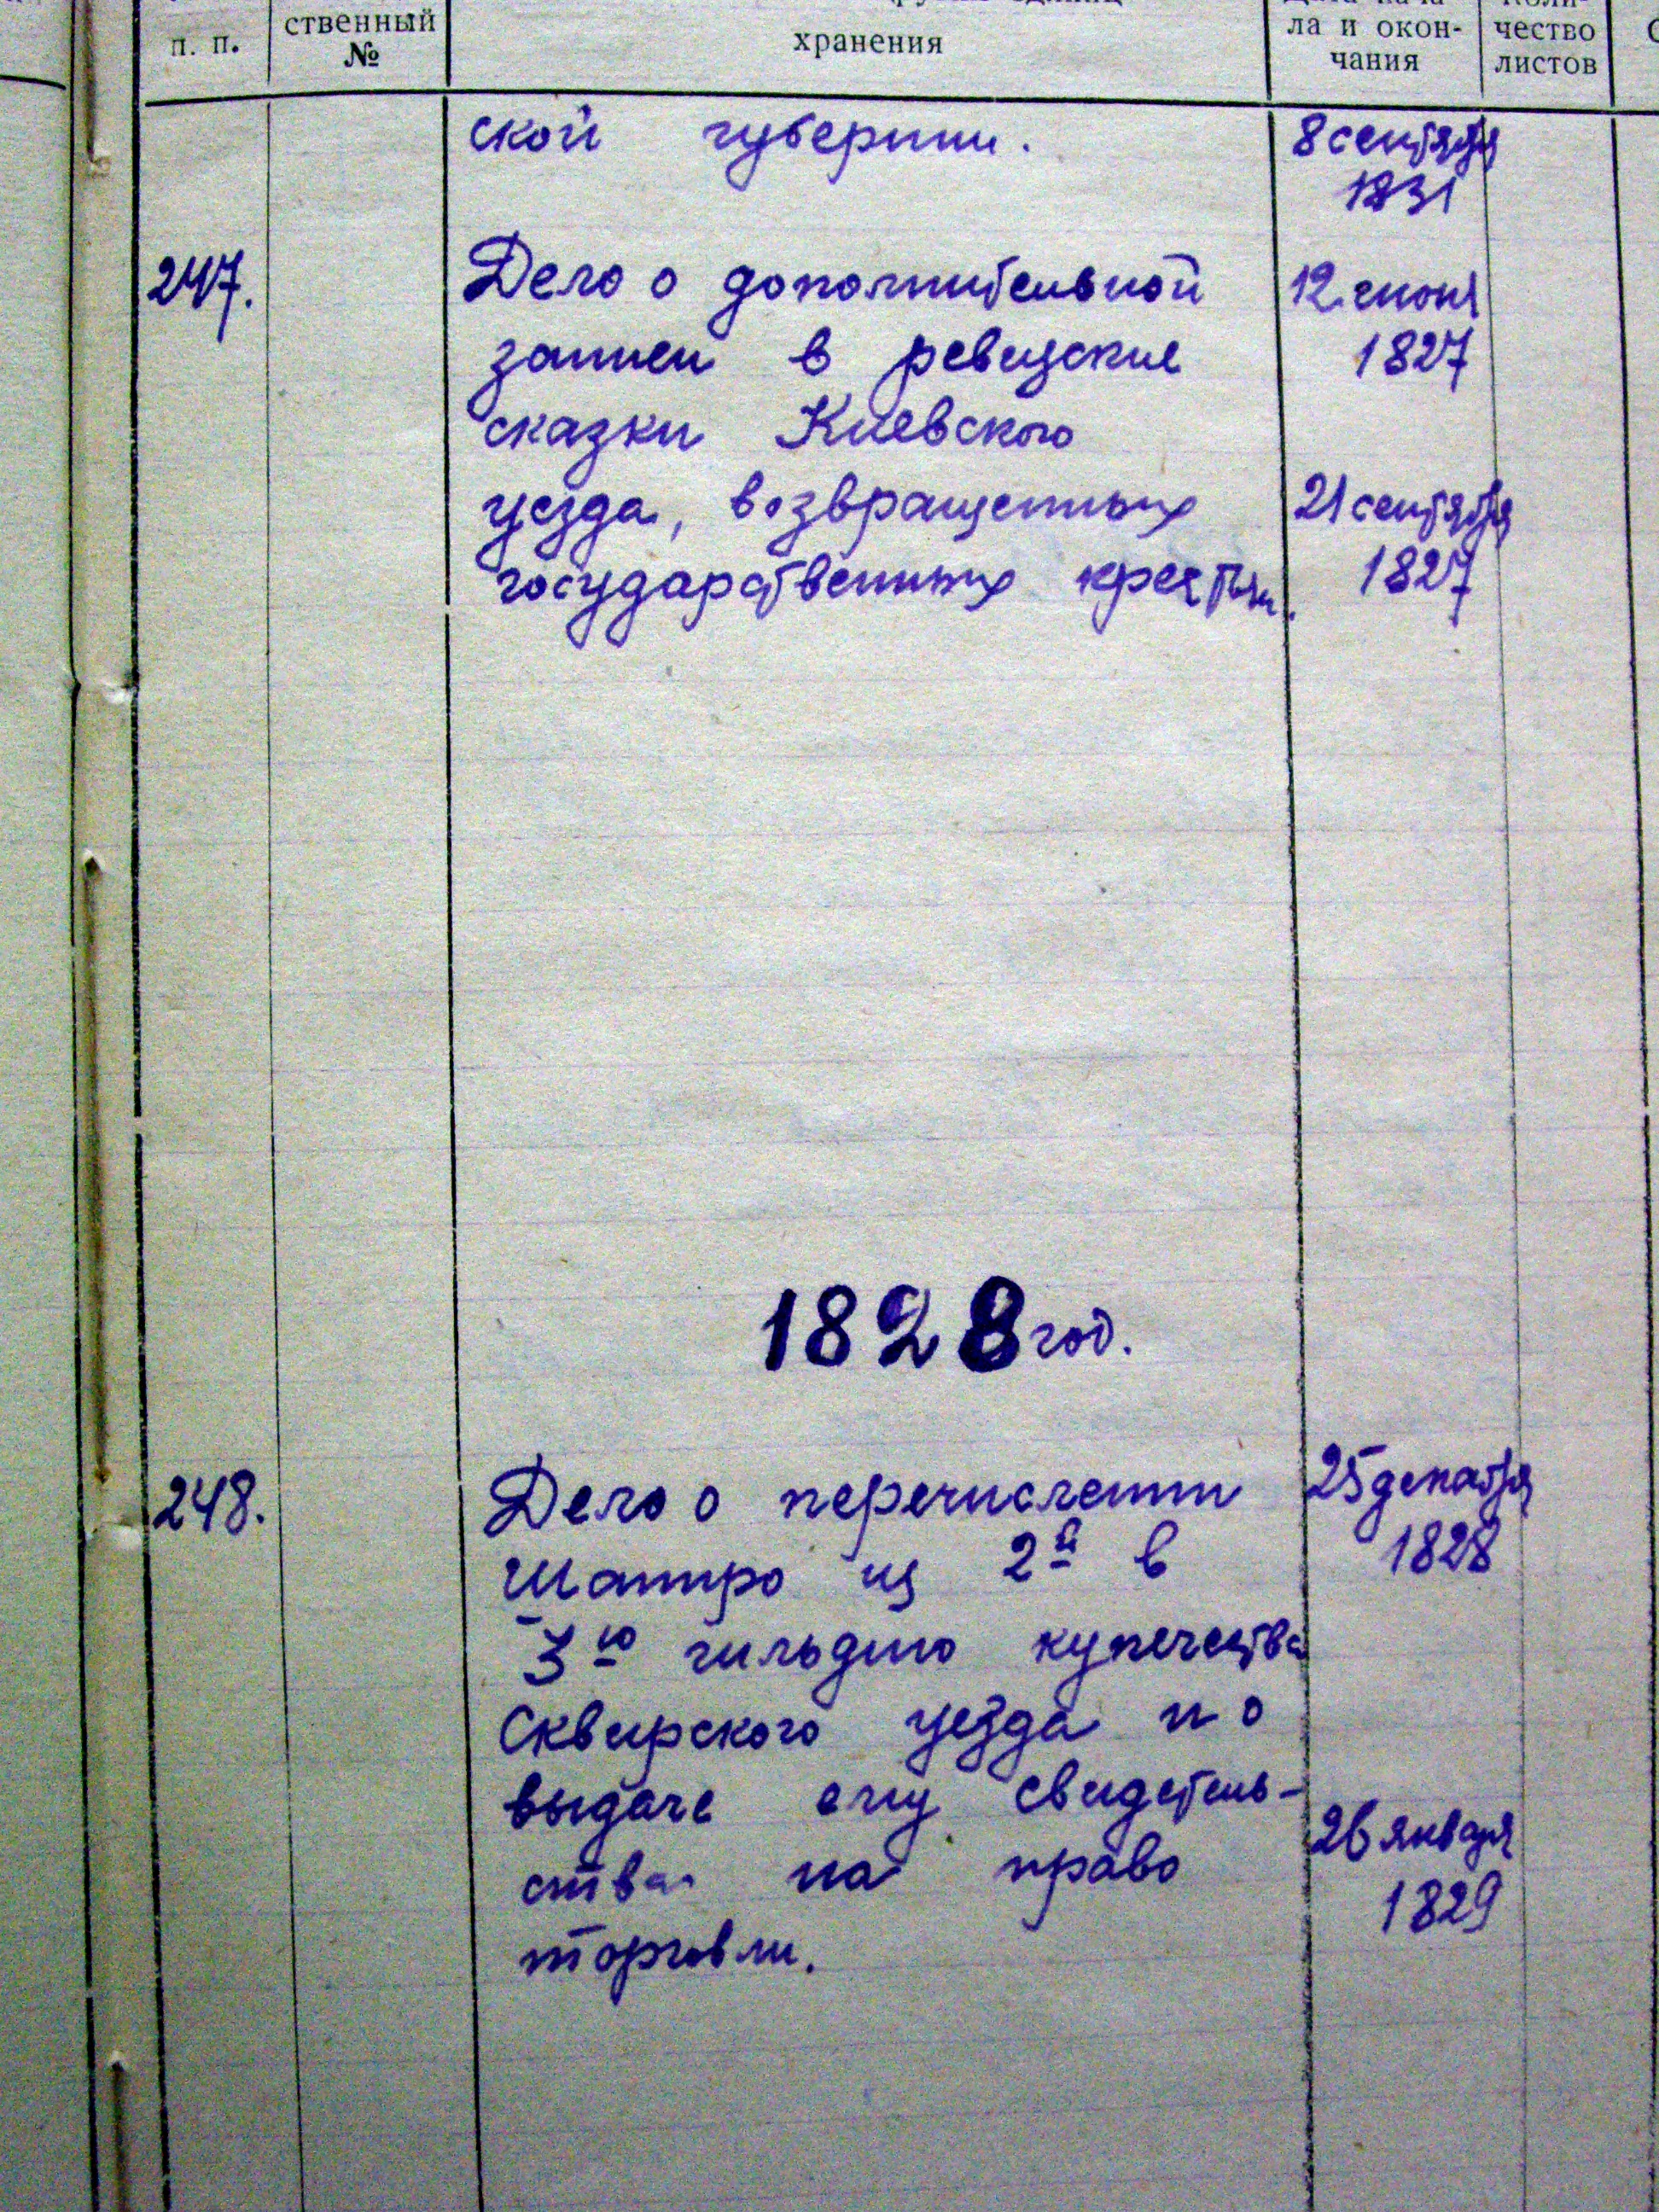 п. п.
ственный
№
хранения
ла и окон-
чания
чество
листов
ской губернии. 8 сентября
1831
247. Дело о дополнительной 12 июня
записи в ревизские 1827
сказки Киевского
уезда, возвращенных 21 сентября
государственных крестьян. 1827
1828 год.
248. Дело о перечислении 25 декабря
Шапиро из 2й в 1828
3ю гильдию купечества
Сквирского уезда и о
выдаче ему свидетель-
ства на право 26 января
торговли. 1829